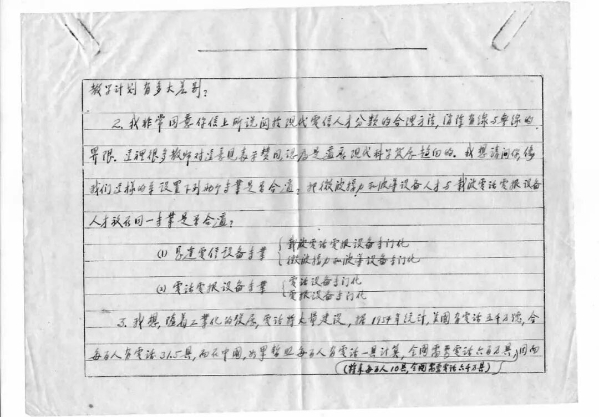 教学计划有多大差别?
2. 我非常同意你信上所说关于现代电信人才分类的合理方法,消除有线与无线的
界限。这里很多教师对这意见表示赞同认为是适应现代科学发展趋向的。我想请问你,像
我们这样的专设置下列两个专业是否合适:把微波接力和波导设备人才与载波电话电报设备
人才放在同一专业是否合适?
(1) 长途电信设备专业 载波电话电报设备专门化
微波接力和波导设备专门化
(2) 电话电报设备专业 电话设备专门化
电报设备专门化
3. 我想,随着工业化的发展,电话将大量建设,据1954年统计,美国有电话五千万号,合
每百人有电话31.5具,而在中国,如果暂照每百人有电话一具计算,全国需要电话六百万具,因而
(如果每百人10具,全国需要电话六千万具)